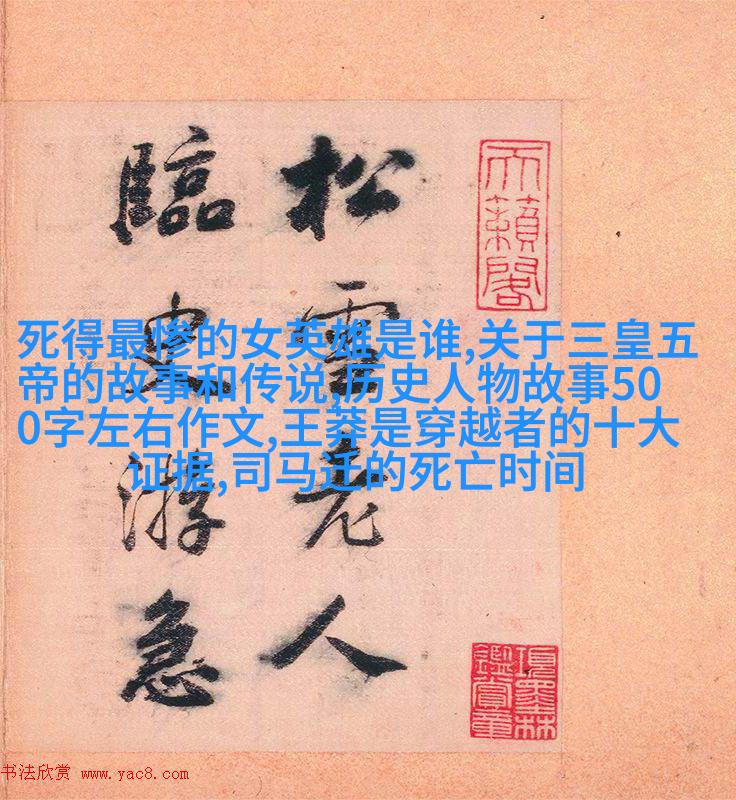 死得最惨的女英雄是谁,关于三皇五
帝的故事和传说,历史人物故事50
0字左右作文,王莽是穿越者的十大
证据,司马迁的死亡时间
天籟閣
松雪老人
臨史游急
項墨林
鑑賞章
书法欣赏 www.yac8.com